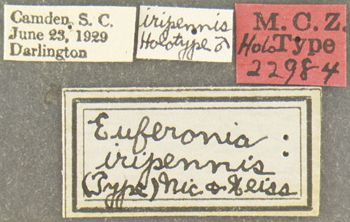 Camden, S. C.
June 23, 1929
Darlington
iripennis
Holotype ♂
M. C. Z.
Holo Type
22984
Euferonia :
iripennis :
(Type) Nic & Weiss